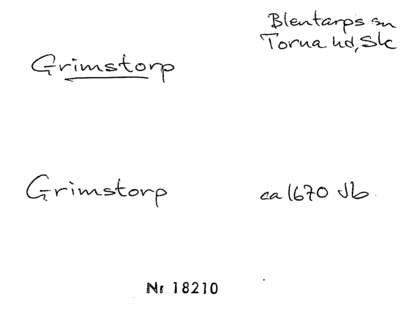 Blentarps sn
Torna hd, Sk
Grimstorp
Grimstorp
ca 1670 Jb
Nr 18210